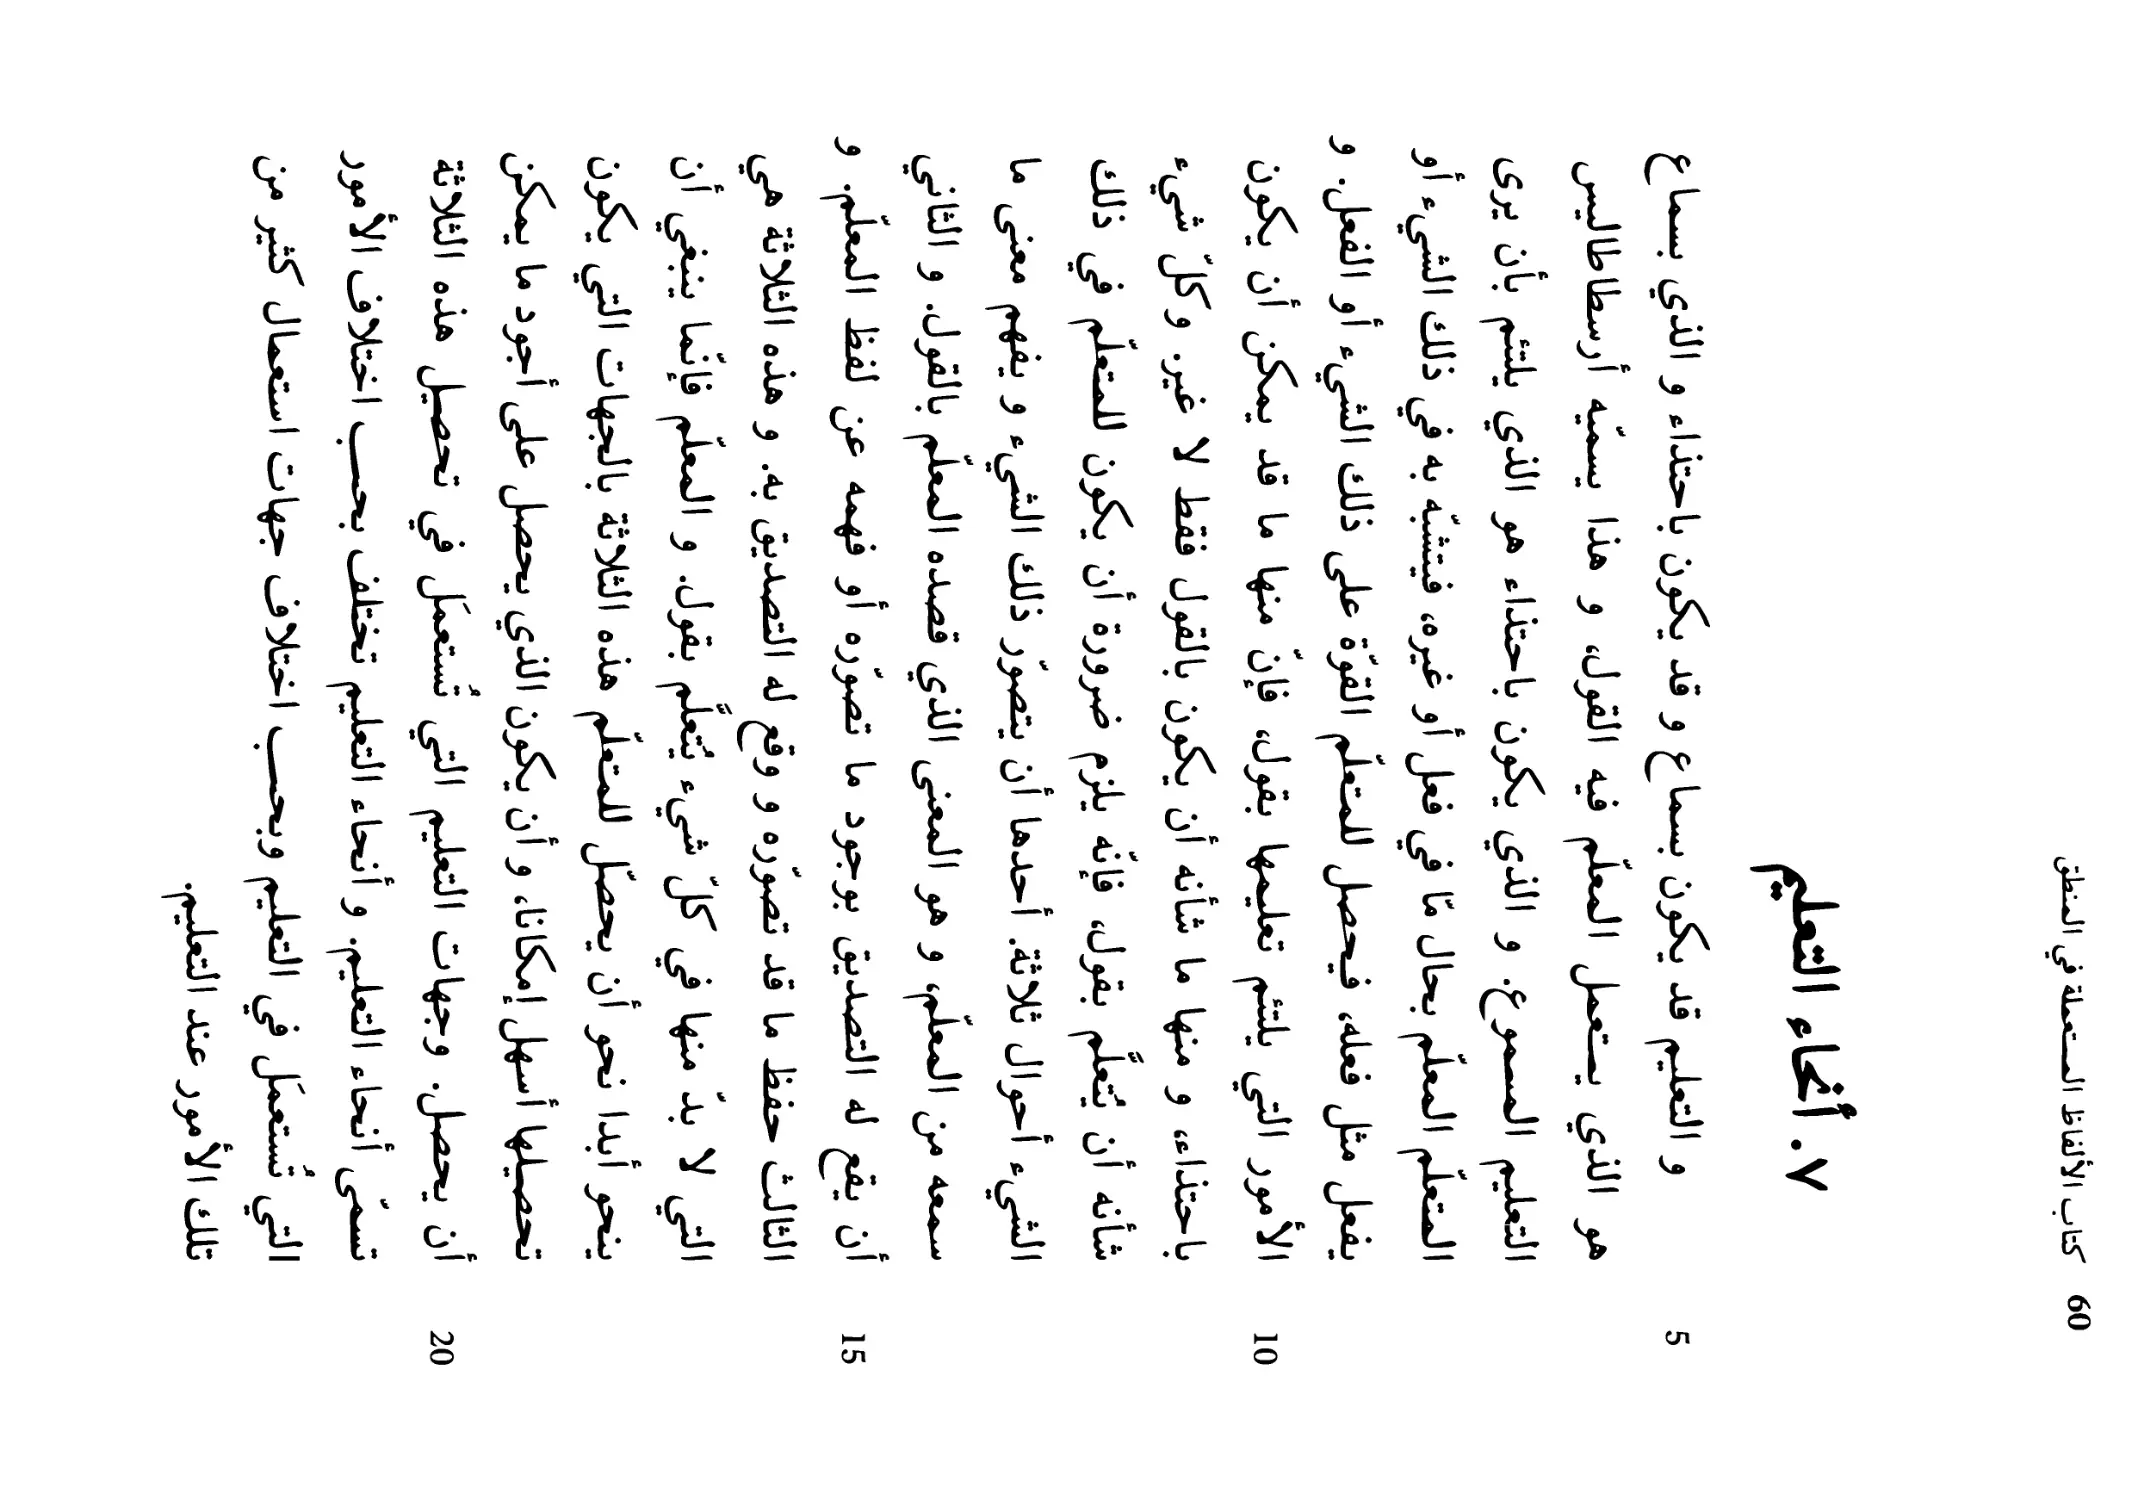 60 كتاب الألفاظ المستعملة في المنطق
٧. أنحاء التعليم
5 و التعليم قد يكون بسماع و قد يكون باحتذاء و الذي بسماع
هو الذي يستعمل المعلّم فيه القول، و هذا يسمّيه أرسطاطاليس
التعليم المسموع. و الذي يكون باحتذاء هو الذي يلتئم بأن يرى
المتعلّم المعلّم بحال مّا في فعل أو غيره، فيتشبّه به في ذلك الشيء أو
يفعل مثل فعله، فيحصل للمتعلّم القوّة على ذلك الشيء أو الفعل. و
10 الأمور التي يلتئم تعليمها بقول، فإنّ منها ما قد يمكن أن يكون
باحتذاء، و منها ما شأنه أن يكون بالقول فقط لا غير. وكلّ شيء
شأنه أن يُتعلَّم بقول، فإنّه يلزم ضرورة أن يكون للمتعلّم في ذلك
الشيء أحوال ثلاثة. أحدها أن يتصوّر ذلك الشيء و يفهم معنى ما
سمعه من المعلّم، و هو المعنى الذي قصده المعلّم بالقول. و الثاني
15 أن يقع له التصديق بوجود ما تصوّره أو فهمه عن لفظ المعلّم. و
الثالث حفظ ما قد تصوّره و وقع له التصديق به. و هذه الثلاثة هي
التي لا بدّ منها في كلّ شيء يُتعلَّم بقول. و المعلّم فإنّما ينبغي أن
ينحو أبدا نحو أن يحصّل للمتعلّم هذه الثلاثة بالجهات التي يكون
تحصيلها أسهل إمكانا، و أن يكون الذي يحصل على أجود ما يمكن
20 أن يحصل. وجهات التعليم التي تُستعمَل في تحصيل هذه الثلاثة
تسمّى أنحاء التعليم. و أنحاء التعليم تختلف بحسب اختلاف الأمور
التي تُستعمَل في التعليم وبحسب اختلاف جهات استعمال كثير من
تلك الأمور عند التعليم.